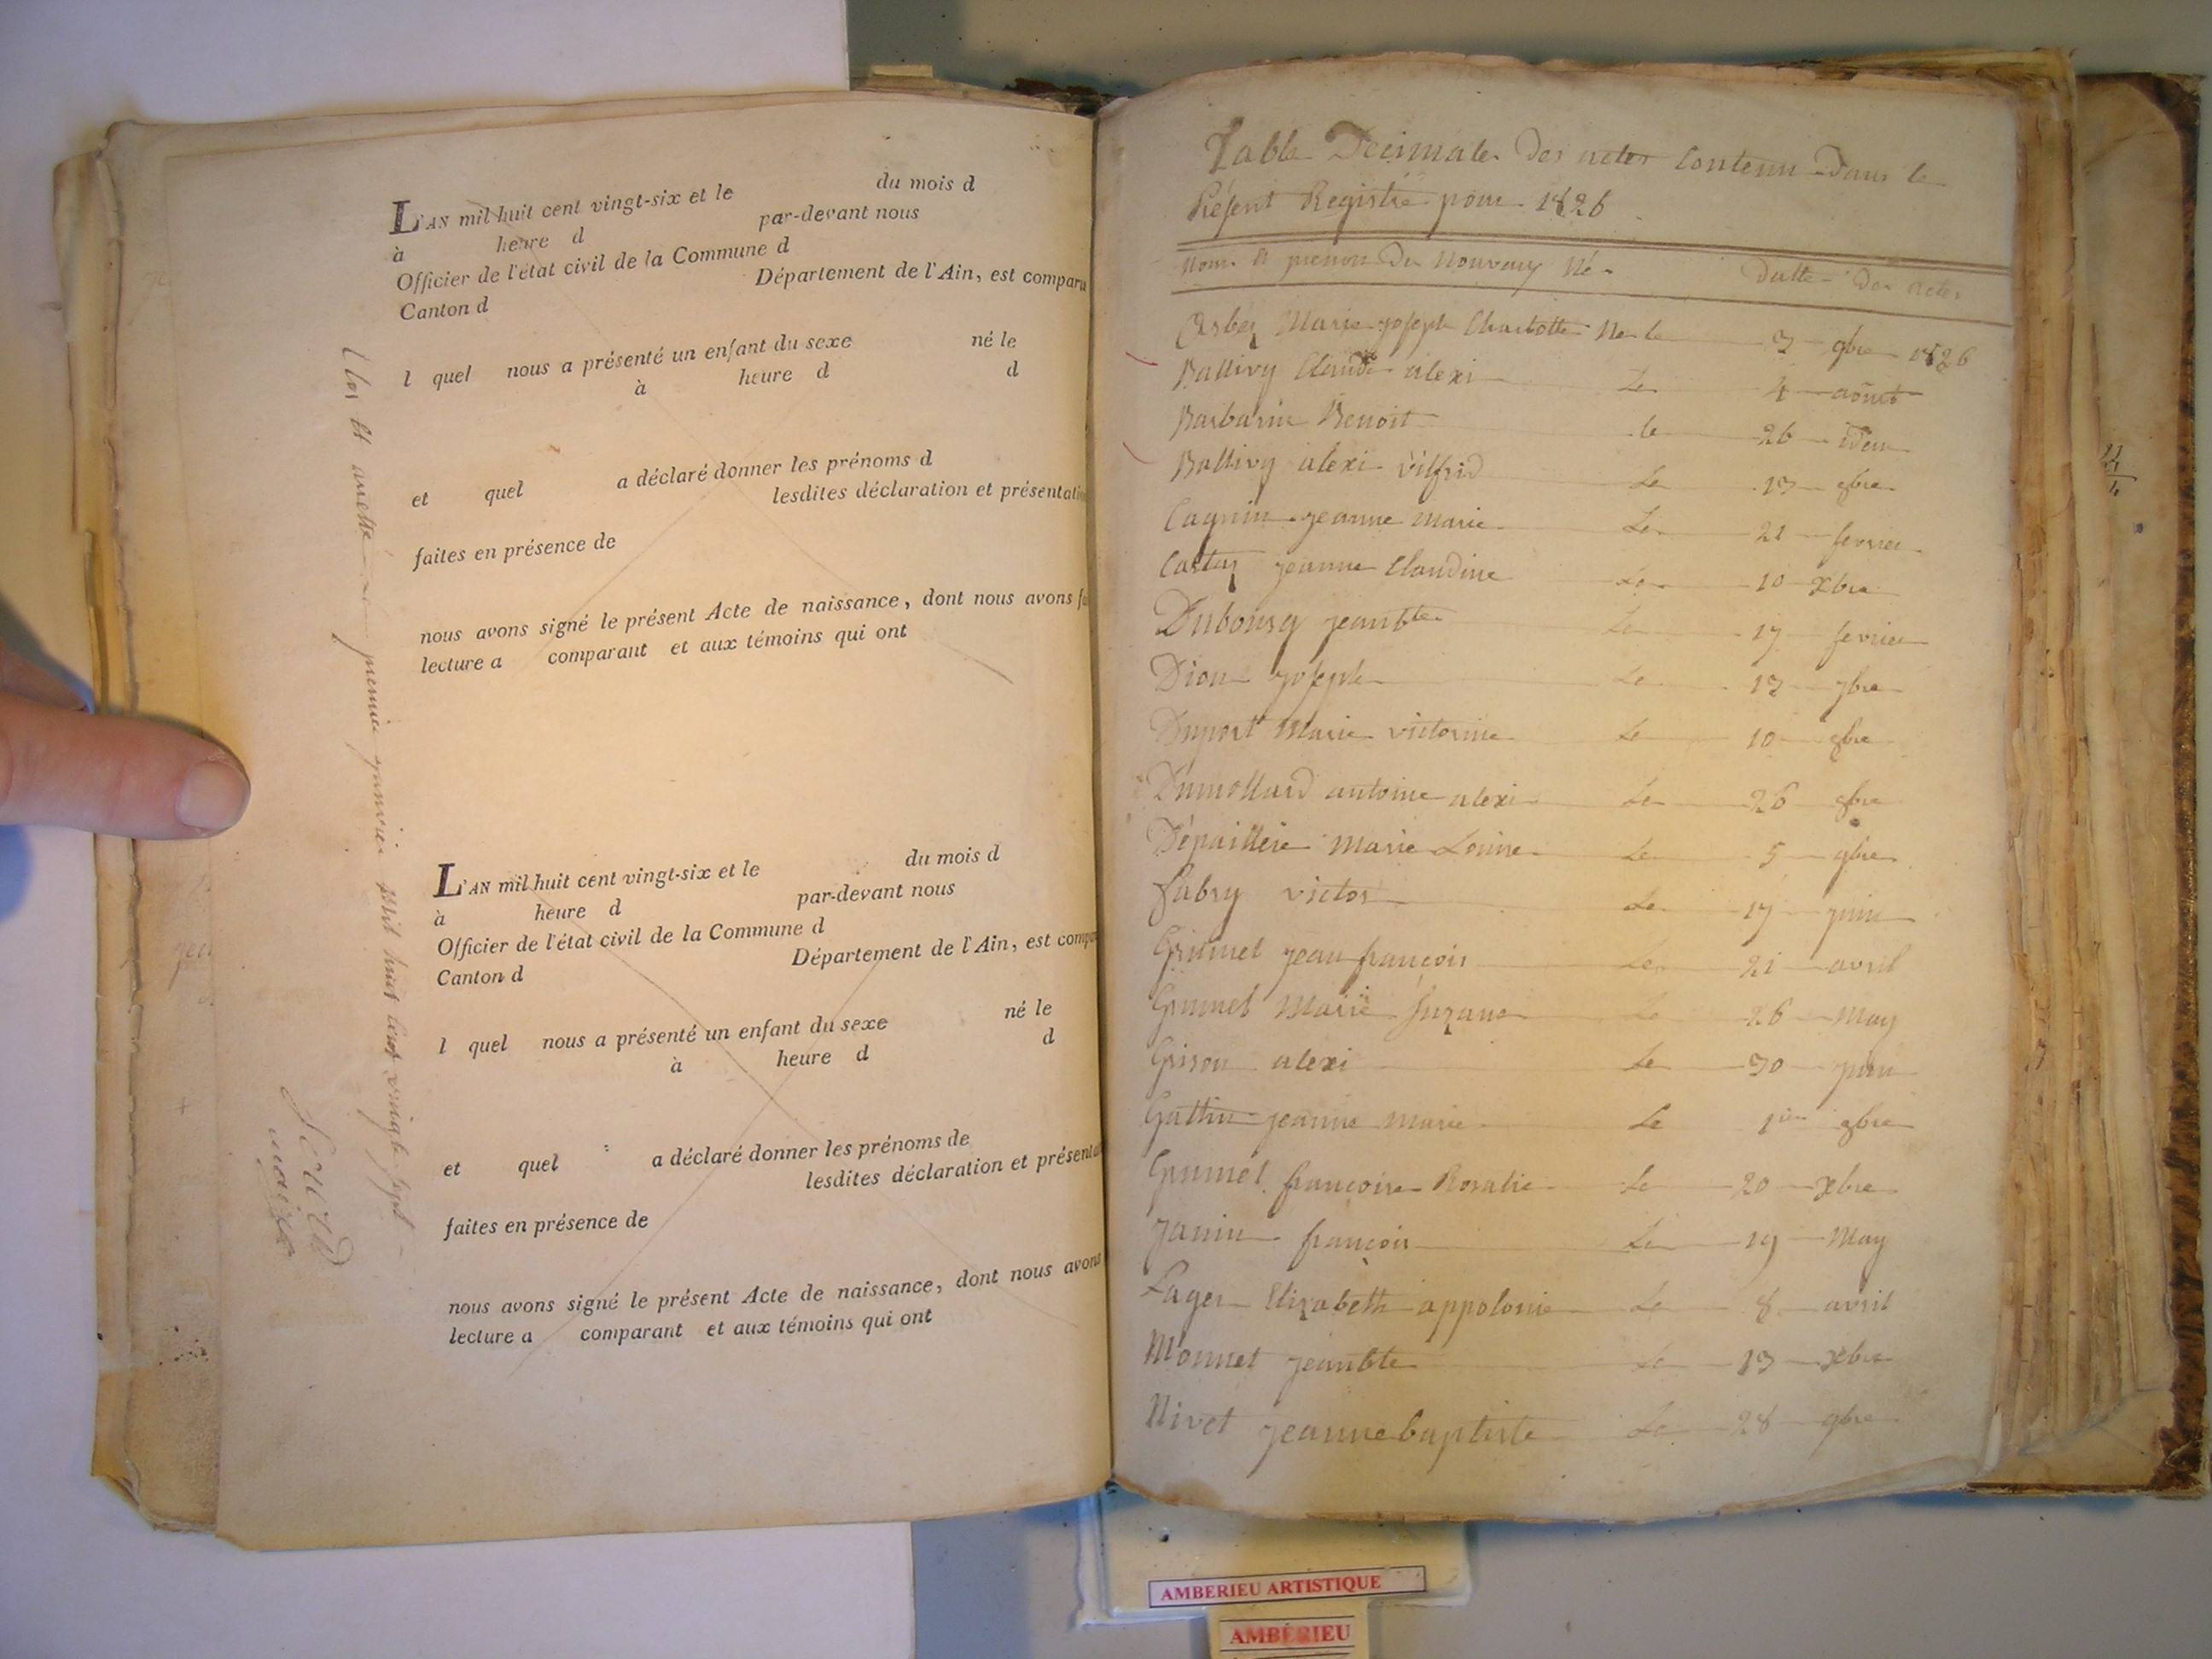 L'AN mil huit cent vingt-six et le du mois d
à heure d par-devant nous
Officier de l'état civil de la Commune d
Canton d Département de l'Ain, est comparu
l quel nous a présenté un enfant du sexe né le
à heure d d
et quel a déclaré donner les prénoms d
lesdites déclaration et présentati
faites en présence de
nous avons signé le présent Acte de naissance, dont nous avons
lecture a comparant et aux témoins qui ont
L'AN mil huit cent vingt-six et le du mois d
à heure d par-devant nous
Officier de l'état civil de la Commune d
Canton d Département de l'Ain, est comp
l quel nous a présenté un enfant du sexe né le
à heure d d
et quel a déclaré donner les prénoms de
lesdites déclaration et présent
faites en présence de
nous avons signé le présent Acte de naissance, dont nous avons
lecture a comparant et aux témoins qui ont
Clos et premier janvier mil huit cent vingt sept
maire
Table Des actes Contenu Dans le
Présent Registre pour 1826
Noms et prenom Du Nouveau Né Datte Des actes
Marie joseph Charlotte Ne le 9bre 1826
Ballivy Claude alexi Le 4 août
Barbarin Benoit le 26 idem
Ballivy alexi vilfrid Le
Cagnin jeanne Marie Le 21 fevrier
jeanne Claudine Le 10 xbre
Dubourg jeanbte Le 17 fevrier
Dion joseph Le
Duport Marie victorine Le 10
Dumollard antoine alexi Le 26
Dépaillère Marie Louise Le 5 9bre
fabry victor Le 17 juin
Grumet jean françois Le 21 avril
Grumet Marie Suzane Le 26 May
Grison alexi Le 30 juin
Gattin jeanne marie Le 1er
Grumet françoise Rosalie Le 20 xbre
Janin françois Le 19 May
Lager Elizabeth appolonie Le 8 avril
Monnet jeanbte Le 13 xbre
Nivet jeanne baptiste Le 28 9bre
AMBERIEU ARTISTIQUE
AMBÉRIEU